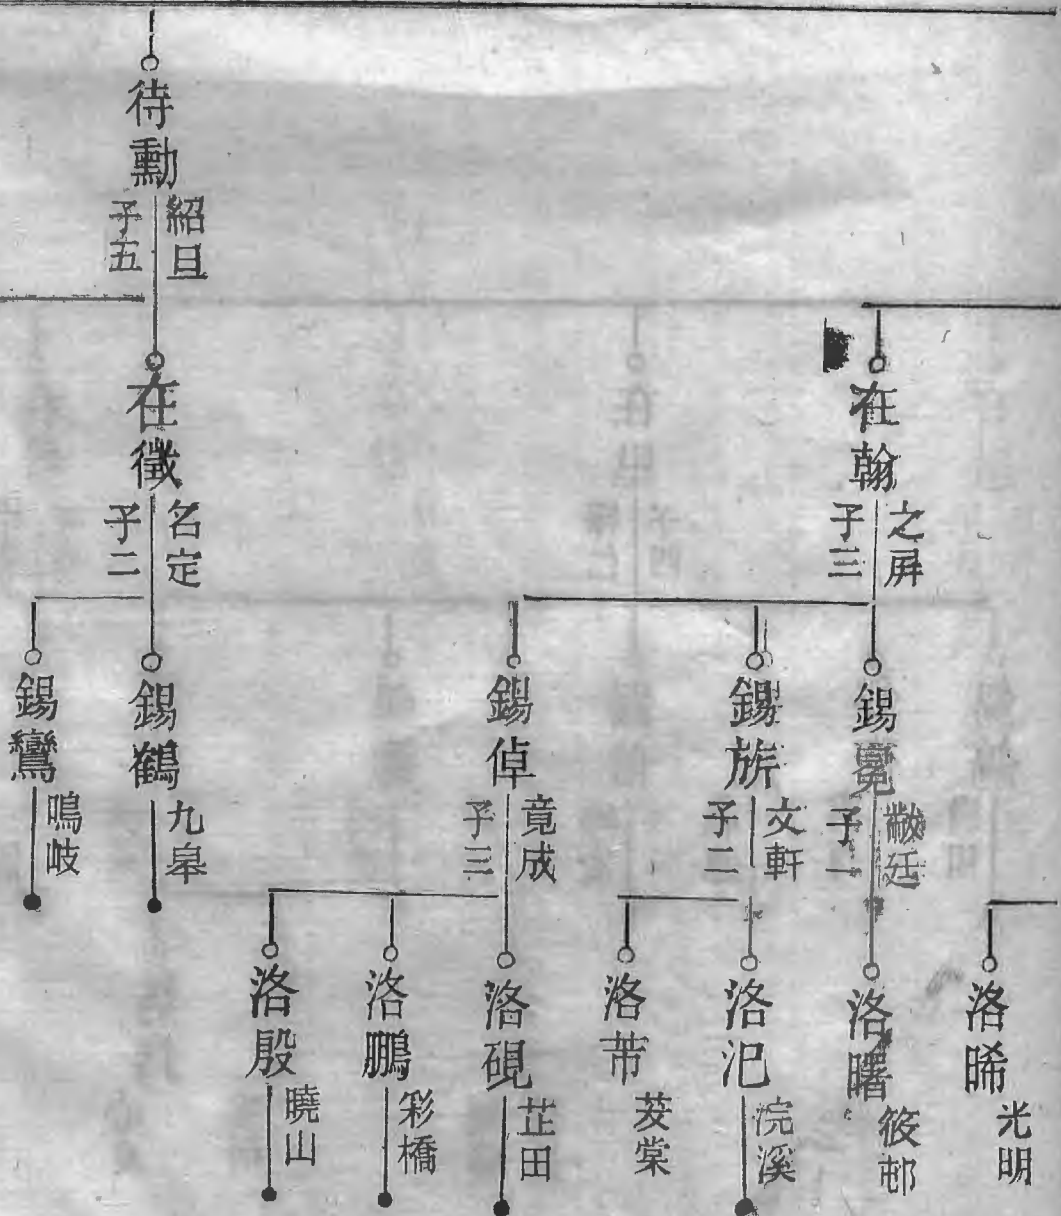 待勳
紹旦
子五
在翰
之屏
子三
在徵
名定
子二
錫冕
黻廷
錫旂
文軒
子二
錫倬
竟成
子三
錫鶴
九皋
錫鸞
鳴岐
洛晞
光明
洛曙
筱邨
洛汜
浣溪
洛芾
茇棠
洛硯
芷田
洛鵬
彩橋
洛殷
曉山